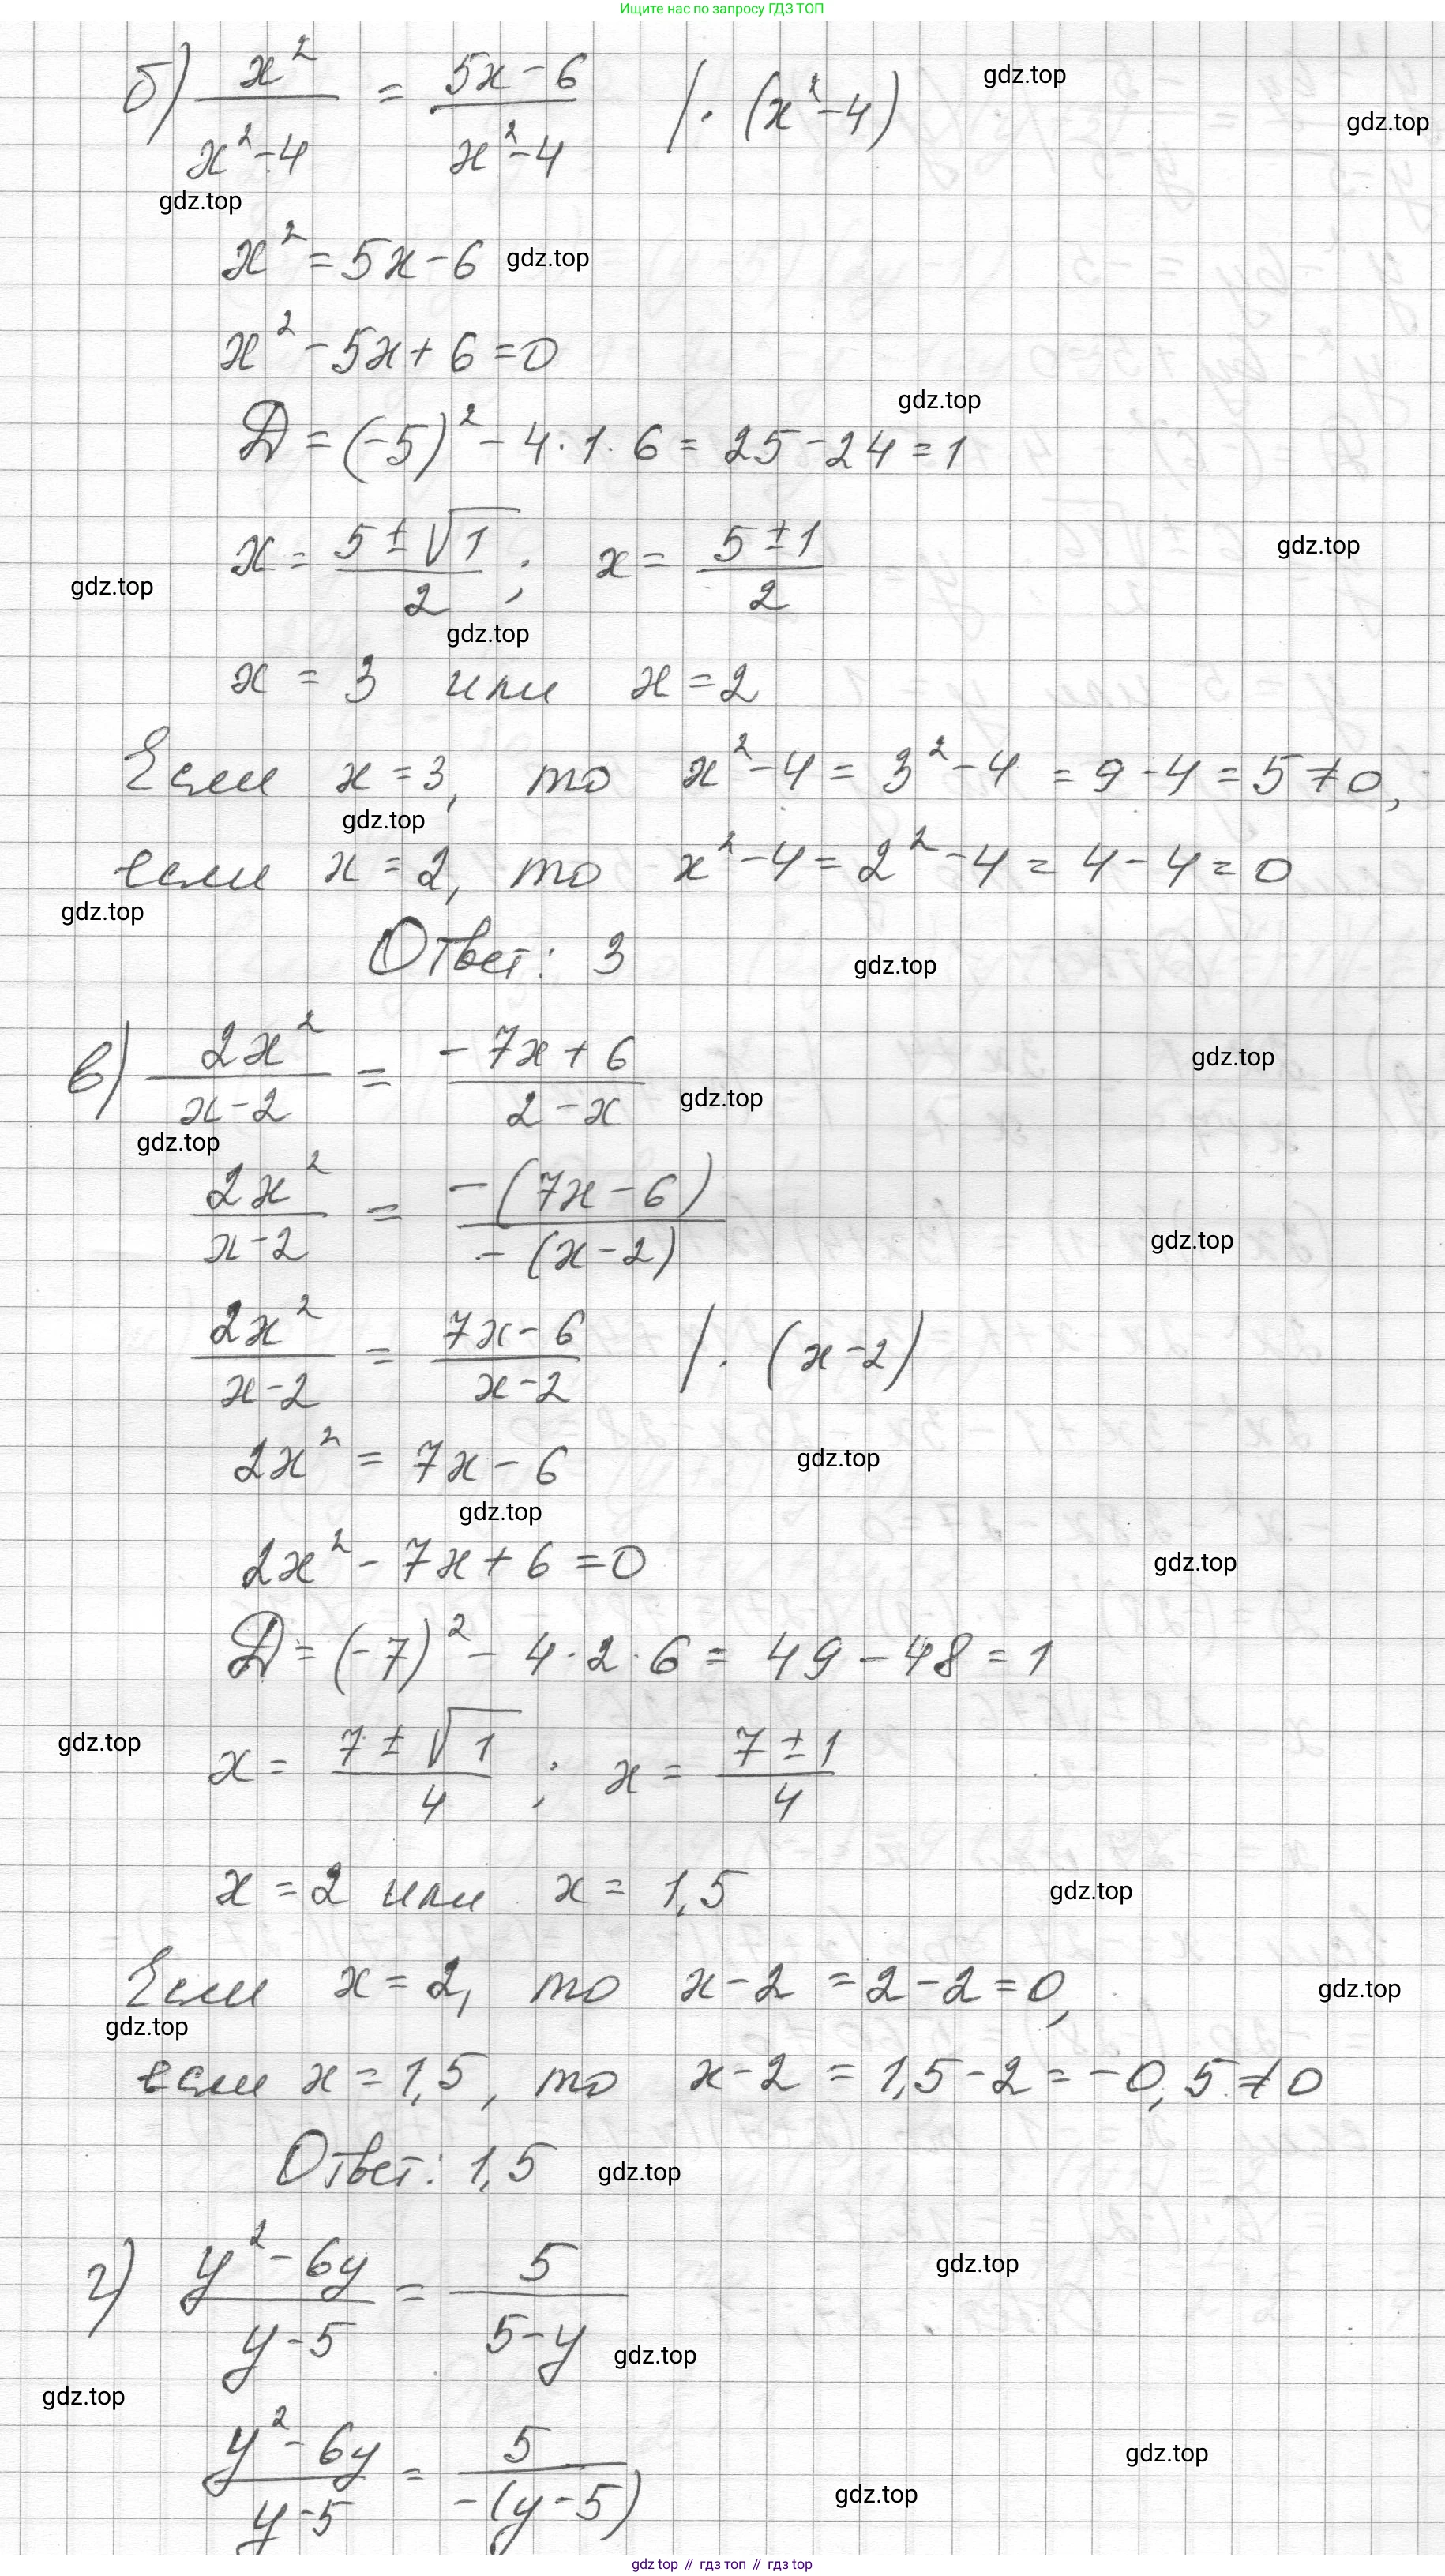 Ищите нас по запросу ГДЗ ТОП
б) x²/(x²-4) = (5x-6)/(x²-4) /·(x²-4)
gdz.top
gdz.top
gdz.top
x² = 5x-6 gdz.top
x² - 5x + 6 = 0
gdz.top
D = (-5)² - 4·1·6 = 25-24 = 1
x = (5±√1)/2; x = (5±1)/2
gdz.top
gdz.top
gdz.top
x = 3 или x = 2
Если x = 3, то x²-4 = 3²-4 = 9-4 = 5≠0,
gdz.top
если x = 2, то x²-4 = 2²-4 = 4-4 = 0
gdz.top
Ответ: 3 gdz.top
в) 2x²/(x-2) = (-7x+6)/(2-x)
gdz.top
gdz.top
gdz.top
2x²/(x-2) = -(7x-6)/-(x-2)
gdz.top
2x²/(x-2) = (7x-6)/(x-2) /·(x-2)
2x² = 7x-6 gdz.top
gdz.top
2x² - 7x + 6 = 0 gdz.top
D = (-7)² - 4·2·6 = 49-48 = 1
gdz.top
x = (7±√1)/4; x = (7±1)/4
x = 2 или x = 1,5 gdz.top
Если x = 2, то x-2 = 2-2 = 0, gdz.top
gdz.top
если x = 1,5, то x-2 = 1,5-2 = -0,5≠0
Ответ: 1,5 gdz.top
г) (y²-6y)/(y-5) = 5/(5-y)
gdz.top
gdz.top
gdz.top
(y²-6y)/(y-5) = 5/-(y-5)
gdz.top
gdz.top
gdz top // гдз топ // гдз top